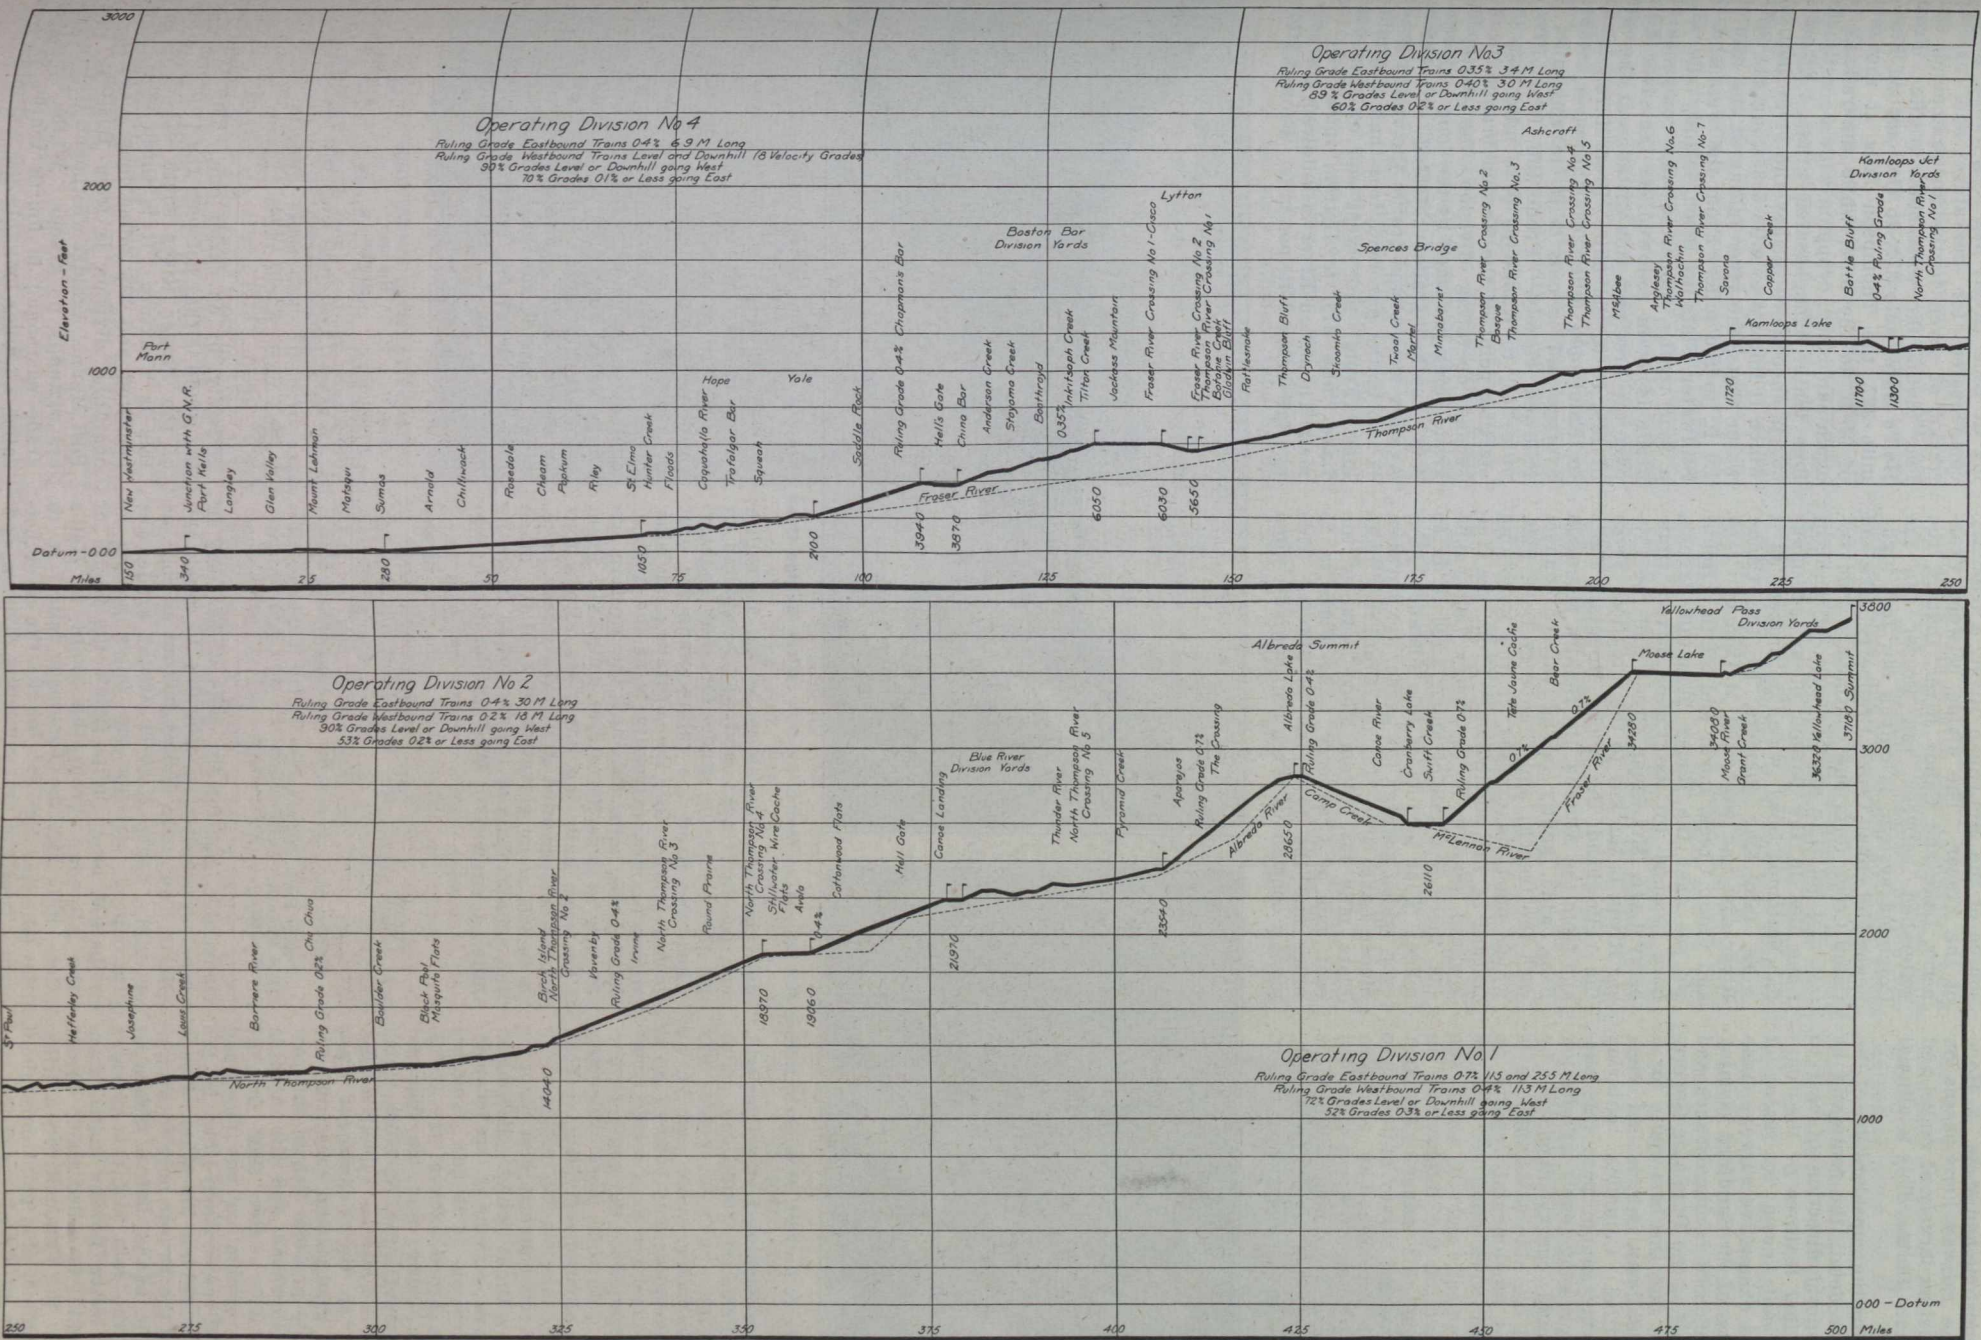 3000
2000
1000
Elevation - Feet
Datum - 0.00
Miles
Operating Division No 4
Ruling Grade Eastbound Trains 0.4% 6.9 M Long
Ruling Grade Westbound Trains Level and Downhill (8 Velocity Grades)
90% Grades Level or Downhill going West
70% Grades 0.1% or Less going East
Operating Division No 3
Ruling Grade Eastbound Trains 0.35% 3.4 M Long
Ruling Grade Westbound Trains 0.40% 3.0 M Long
89% Grades Level or Downhill going West
60% Grades 0.2% or Less going East
Port
Mann
New Westminster
Junction with G.N.R.
Port Kells
Langley
Glen Valley
Mount Lehman
Matsqui
Sumas
Arnold
Chilliwack
Rosedale
Cheam
Popkum
Riley
St Elmo
Hunter Creek
Floods
Hope
Coquahalla River
Trafalgar Bar
Squeah
Yale
Saddle Rock
Ruling Grade 0.4% Chapman's Bar
Hell's Gate
China Bar
Anderson Creek
Stoyama Creek
Boston Bar
Division Yards
Boothroyd
0.35%
Inkitsaph Creek
Tilton Creek
Jackass Mountain
Fraser River Crossing No 1-Cisco
Lytton
Fraser River Crossing No 2
Thompson River Crossing No 1
Botanie Creek
Gladwin Bluff
Rattlesnake
Thompson Bluff
Drynoch
Skoomka Creek
Spences Bridge
Twaal Creek
Martel
Minnabariet
Thompson River Crossing No 2
Basque
Thompson River Crossing No 3
Ashcroft
Thompson River Crossing No 4
Thompson River Crossing No 5
McAbee
Anglesey
Thompson River Crossing No 6
Walhachin
Thompson River Crossing No 7
Savona
Copper Creek
Kamloops Lake
Battle Bluff
0.4% Ruling Grade
Kamloops Jct
Division Yards
North Thompson River
Crossing No 1
Fraser River
Thompson River
15.0
34.0
28.0
105.0
210.0
394.0
387.0
605.0
603.0
565.0
1172.0
1170.0
1130.0
25
50
75
100
125
150
175
200
225
250
Operating Division No 2
Ruling Grade Eastbound Trains 0.4% 30 M Long
Ruling Grade Westbound Trains 0.2% 1.8 M Long
90% Grades Level or Downhill going West
53% Grades 0.2% or Less going East
St Paul
Hefferley Creek
Josephine
Louis Creek
Barriere River
Ruling Grade 0.2% Chu Chua
Boulder Creek
Black Pool
Mosquito Flats
Birch Island
North Thompson River
Crossing No 2
Vavenby
Ruling Grade 0.4%
Irvine
North Thompson River
Crossing No 3
Round Prairie
North Thompson River
Crossing No 4
Stillwater Wire Cache
Flats
Avola
0.4%
Cottonwood Flats
Hell Gate
Canoe Landing
Blue River
Division Yards
Thunder River
North Thompson River
Crossing No 5
Pyramid Creek
Aparejos
Ruling Grade 0.7%
The Crossing
Albreda Summit
Albreda Lake
Ruling Grade 0.4%
Canoe River
Cranberry Lake
Swift Creek
Ruling Grade 0.7%
Tete Jaune Cache
Bear Creek
0.7%
0.7%
Moose Lake
Yellowhead Pass
Division Yards
Moose River
Grant Creek
3632.0 Yellowhead Lake
3718.0 Summit
North Thompson River
Albreda River
Camp Creek
McLennan River
Fraser River
1404.0
1897.0
1906.0
2197.0
2354.0
2865.0
2611.0
3428.0
3408.0
3800
3000
2000
1000
0.00 - Datum
Operating Division No 1
Ruling Grade Eastbound Trains 0.7% 11.5 and 25.5 M Long
Ruling Grade Westbound Trains 0.4% 11.3 M Long
72% Grades Level or Downhill going West
52% Grades 0.3% or Less going East
250
275
300
325
350
375
400
425
450
475
500 Miles